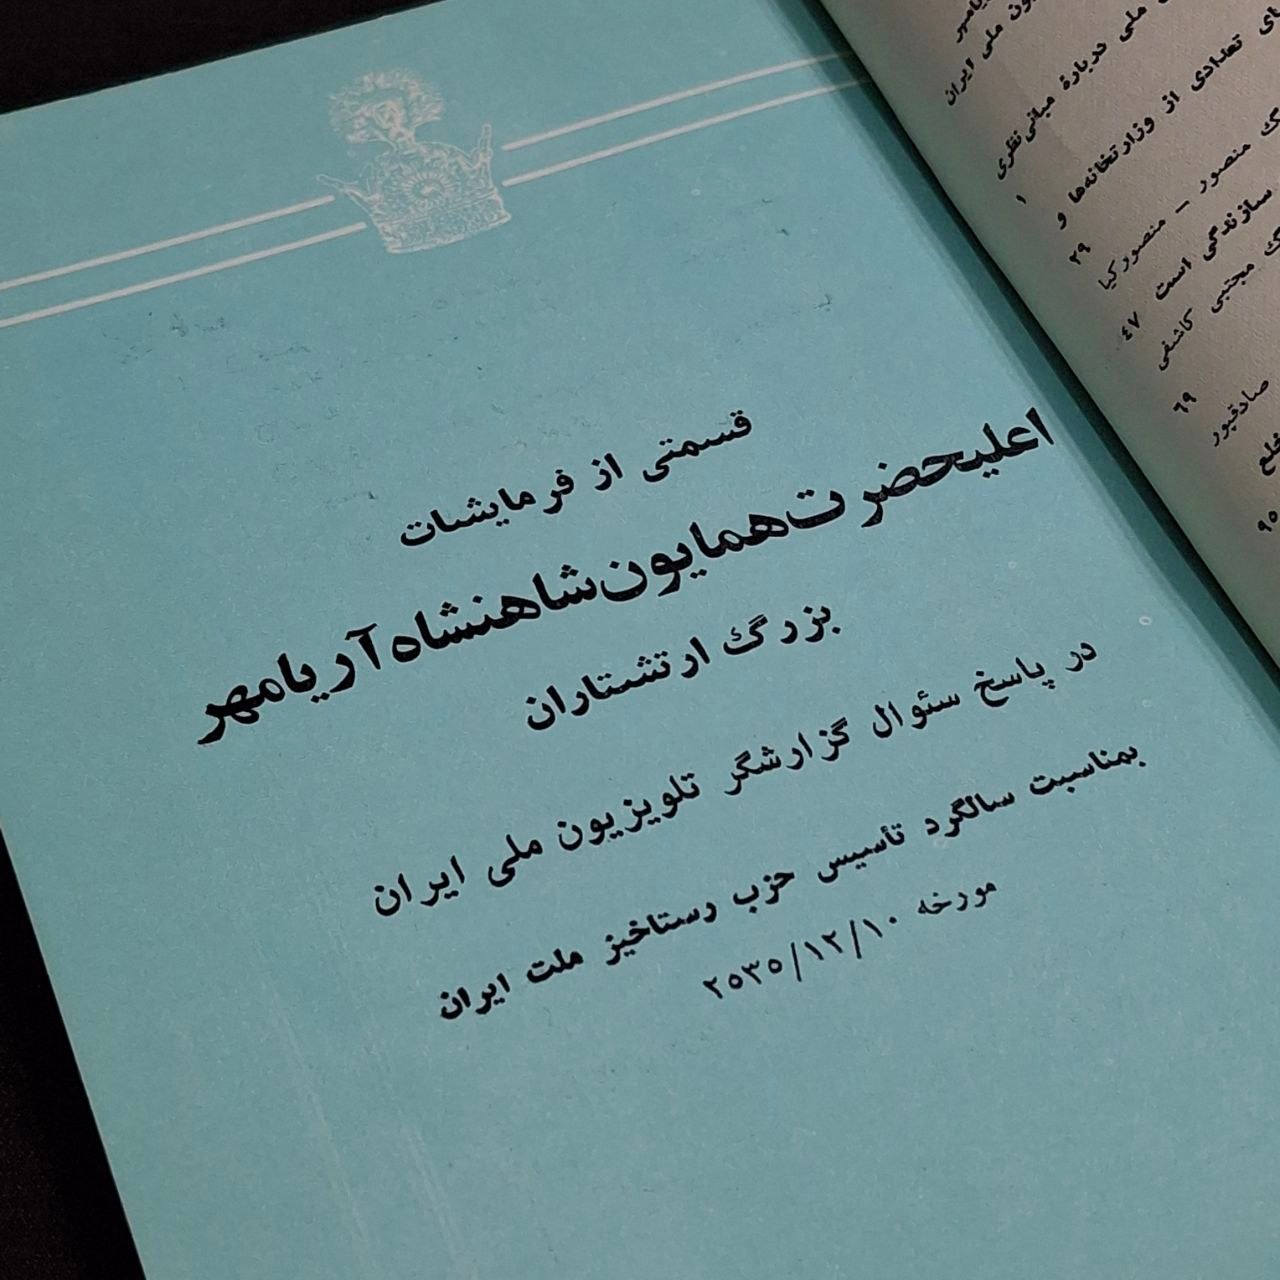 قسمتی از فرمایشات
اعلیحضرت همایون شاهنشاه آریامهر
بزرگ ارتشتاران
در پاسخ سئوال گزارشگر تلویزیون ملی ایران
بمناسبت سالگرد تأسیس حزب رستاخیز ملت ایران
مورخه ۲۵۳۵/۱۲/۱۰
ملی ایران
ملی دربارهٔ مبانی نظری
۱
تعدادی از وزارتخانه‌ها و
۲۹
منصور - منصور کیا
سازندگی است
۴۷
مجتبی کاشفی
۶۹
صادقپور
خلع
۹۵